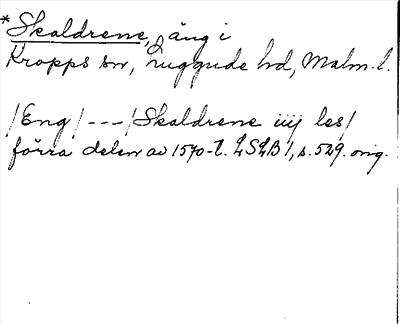 *Skaldrene, äng i
Kropps sn, Luggude hd, Malm. l.
/Eng/ --- /Skaldrene iiij les/
förra delen av 1570-t. LSLB 1, s. 529. orig.